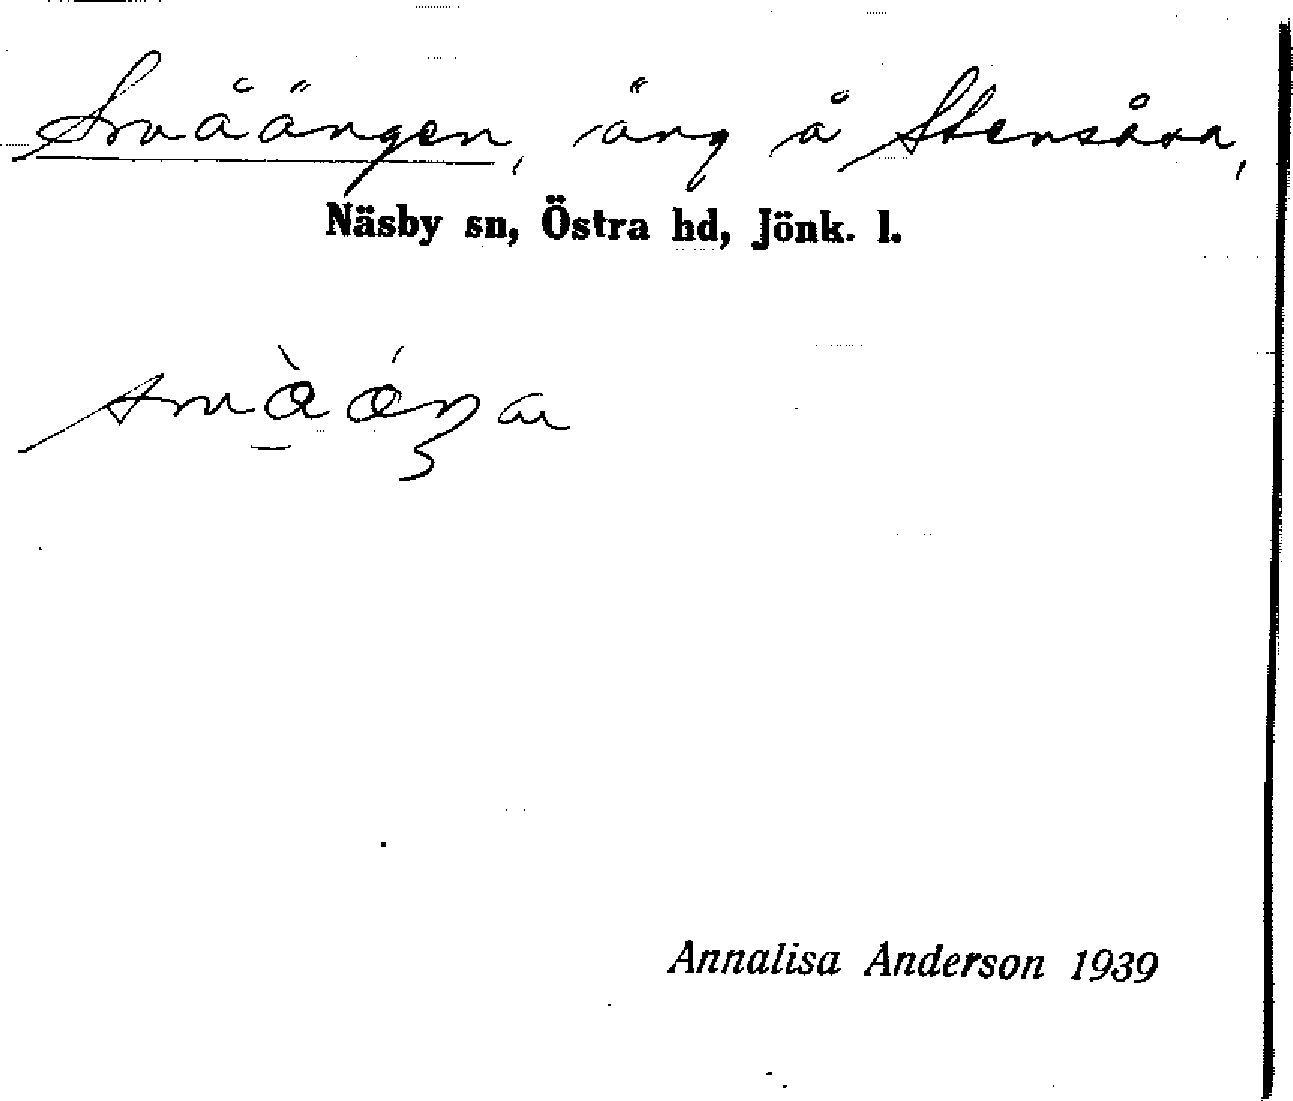 Småängen, äng å Stensåsa,
Näsby sn, Östra hd, Jönk. l.
Annalisa Anderson 1939